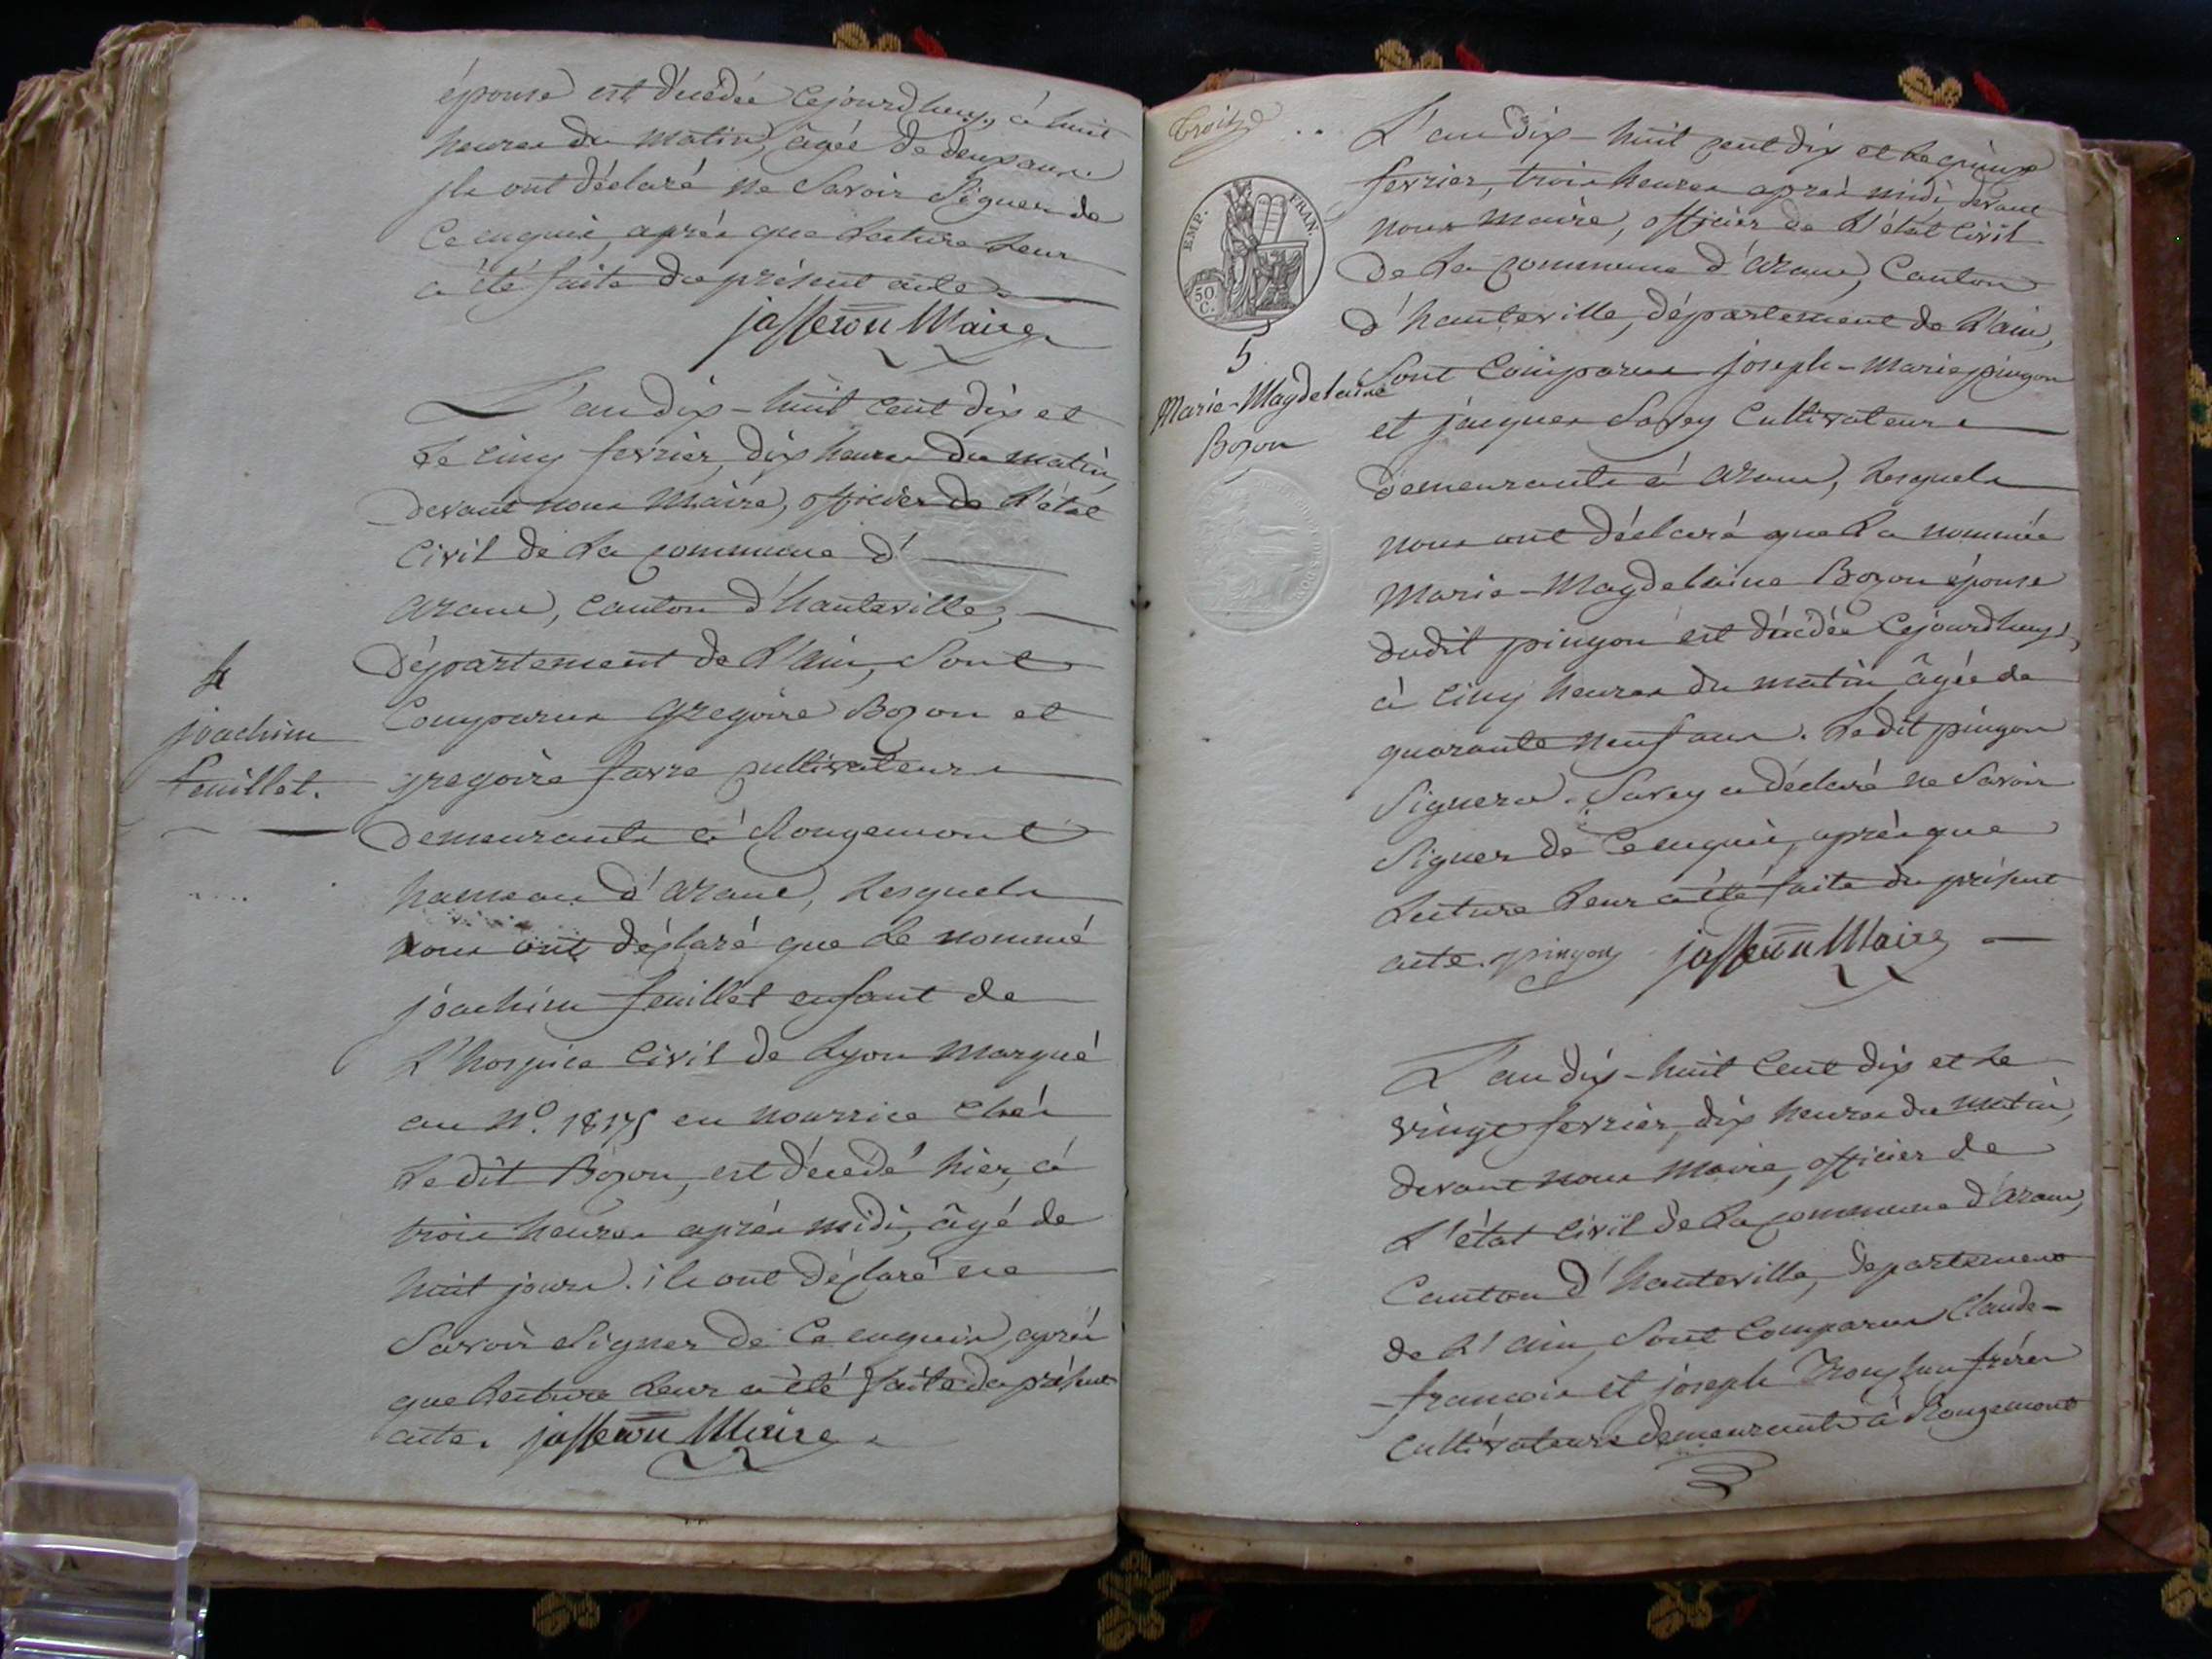 épouse est décédée cejourdhuy, à huit
heures du matin, âgée de deux ans.
ils ont déclaré ne Savoir Signer de
Ce enquis, après que Lecture Leur
a été faite du présent acte.
jasseron Maire
L'an dix-huit Cent dix et
Le cinq fevrier, dix heures du matin,
devant nous Maire, officier de L'état
Civil de La commune d'
arane, Canton d'hauteville,
département de L'ain, Sont
Comparus gregoire Bozon et
4
joachim
feuillet.
gregoire favre cultivateurs
demeurants à Rougemont
hameau d'arane, Lesquels
nous ont déclaré que Le nommé
joachim feuillet enfant de
L'hospice Civil de Lyon marqué
au N°. 18175 en nourrice chés
Le dit Bozon, est décédé hier, à
trois heures après midi, âgé de
huit jours. ils ont déclaré ne
Savoir Signer de Ce enquis, après
que Lecture Leur a été faite du présent
acte. jasseron Maire
treize
EMP. FRAN.
50 C.
5
Marie-Magdelaine
Bozon
L'an dix-huit cent dix et Le quinze
fevrier, trois heures après midi, devant
nous maire, officier de L'état Civil
de La commune d'arane, Canton
d'hauteville, département de L'ain,
Sont Comparus joseph-Marie pingon
et jacques Savey Cultivateurs
demeurants à arane, Lesquels
nous ont déclaré que La nommée
Marie-Magdelaine Bozon épouse
dudit pingon est décédée Cejourdhuy,
à cinq heures du matin âgée de
quarante neuf ans. Ledit pingon
Signera. Savey a déclaré ne Savoir
Signer de Ce enquis, après que
Lecture Leur a été faite du présent
acte. pingon jasseron Maire
L'an dix-huit Cent dix et Le
vingt fevrier, dix heures du matin,
devant nous Maire, officier de
L'état Civil de La commune d'arane,
Canton d'hauteville, département
de L'ain, Sont Comparus Claude-
-francois et joseph frères
Cultivateurs demeurants à Rougemont